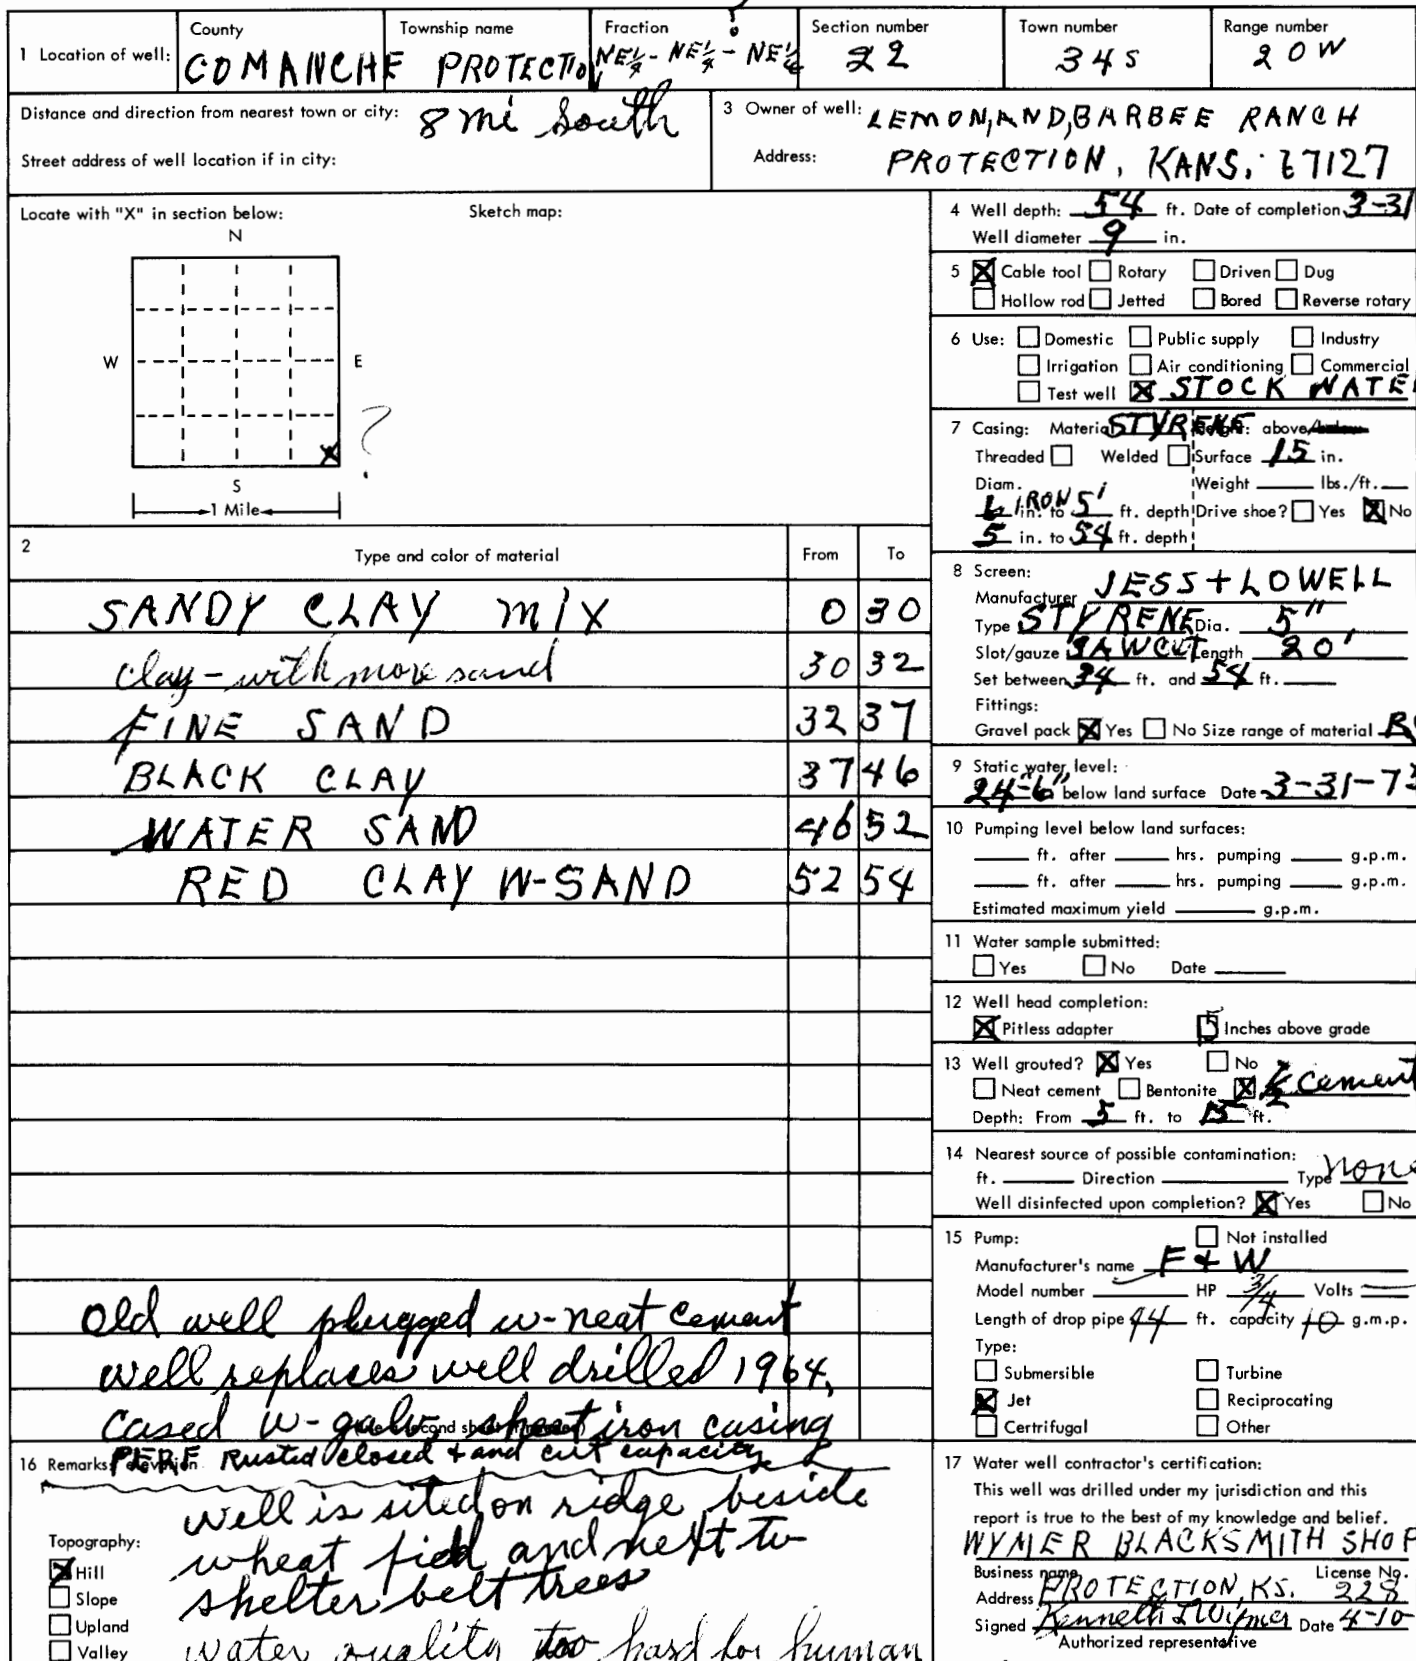 County Township name Fraction ? Section number Town number Range number
1 Location of well: COMANCHE PROTECTION NE¼ - NE¼ - NE¼ 22 34S 20W
Distance and direction from nearest town or city: 8 mi South
Street address of well location if in city:
3 Owner of well: LEMON, AND, BARBEE RANCH
Address: PROTECTION, KANS. 67127
Locate with "X" in section below: Sketch map:
N
W E
X ?
S
1 Mile
2 Type and color of material From To
SANDY CLAY MIX 0 30
clay - with more sand 30 32
FINE SAND 32 37
BLACK CLAY 37 46
WATER SAND 46 52
RED CLAY W-SAND 52 54
Old well plugged w-neat cement
well replaces well drilled 1964,
cased w-galv. sheet iron casing
PERF Rusted closed + and cut capacity
16 Remarks: elevation
well is sited on ridge beside
wheat field and next to
shelter belt trees
water quality too hard for human
Topography:
X Hill
Slope
Upland
Valley
4 Well depth: 54 ft. Date of completion 3-31
Well diameter 9 in.
5 X Cable tool Rotary Driven Dug
Hollow rod Jetted Bored Reverse rotary
6 Use: Domestic Public supply Industry
Irrigation Air conditioning Commercial
Test well X STOCK WATER
7 Casing: Material STYRENE Height: above/below
Threaded Welded Surface 15 in.
Diam. Weight lbs./ft.
6 in. IRON to 5' ft. depth Drive shoe? Yes X No
5 in. to 54 ft. depth
8 Screen:
Manufacturer JESS + LOWELL
Type STYRENE Dia. 5"
Slot/gauze SAWCUT Length 20'
Set between 34 ft. and 54 ft.
Fittings:
Gravel pack X Yes No Size range of material
9 Static water level:
24-6" below land surface Date 3-31-7
10 Pumping level below land surfaces:
ft. after hrs. pumping g.p.m.
ft. after hrs. pumping g.p.m.
Estimated maximum yield g.p.m.
11 Water sample submitted:
Yes No Date
12 Well head completion:
X Pitless adapter 5 Inches above grade
13 Well grouted? X Yes No
Neat cement Bentonite X cement
Depth: From 5 ft. to 15 ft.
14 Nearest source of possible contamination:
ft. Direction Type none
Well disinfected upon completion? X Yes No
15 Pump: Not installed
Manufacturer's name F & W
Model number HP 3/4 Volts
Length of drop pipe 44 ft. capacity 10 g.m.p.
Type:
Submersible Turbine
X Jet Reciprocating
Certrifugal Other
17 Water well contractor's certification:
This well was drilled under my jurisdiction and this
report is true to the best of my knowledge and belief.
WYMER BLACKSMITH SHOP
Business name License No.
Address PROTECTION, KS. 228
Signed Kenneth L Wymer Date 4-10
Authorized representative